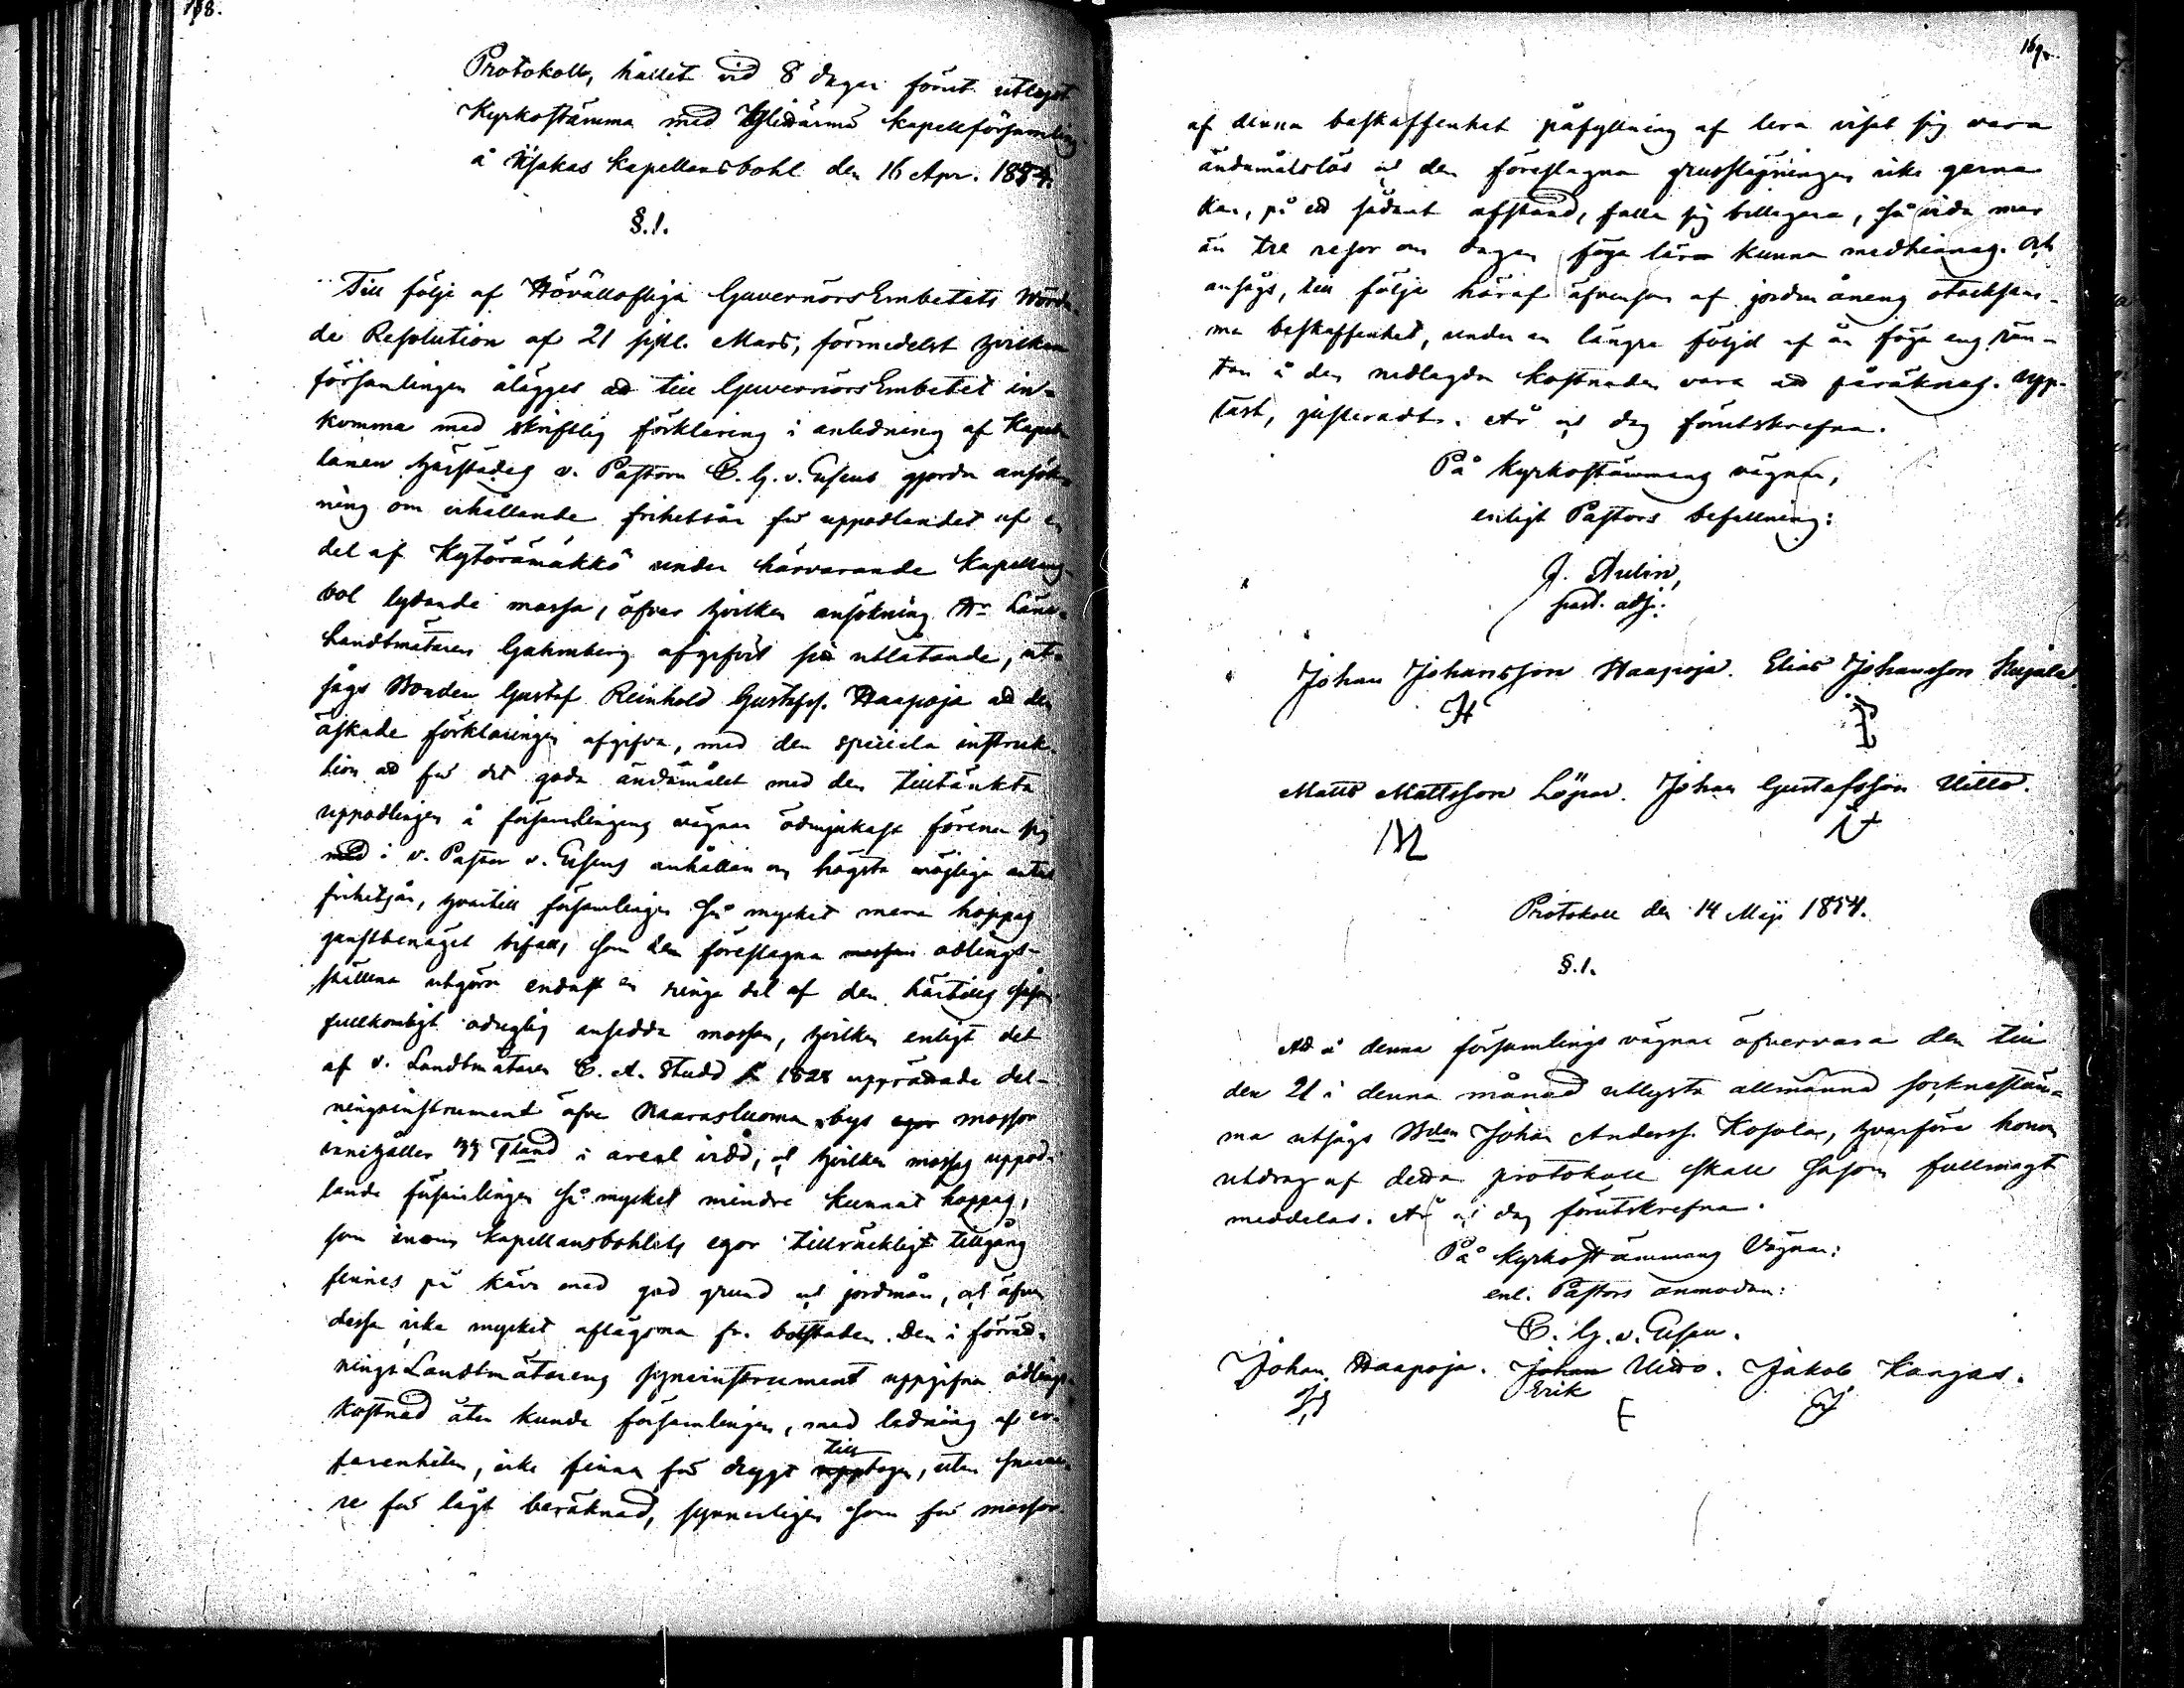 168.
Protokoll, hållet vid 8 dagar förut utlyst
Kyrkostämma med Ylihärmä Kapellförsamling
å Ujakas Kapellansbohl den 16 Apr. 1854.
§.1.
Till följe af Höfvällofliga GuvernörsEmbetets Wörda-
de Resolution af 21 sistl. Mars, förmedelst hvilken
församlingen ålägges att till GuvernörsEmbetet in-
komma med skriftlig förklaring i anledning af Kapel-
lanen härstädes v. Pastorn C. G. v. Essens gjorda ansök-
ning om erhållande frihetsår för uppodlandet af en
del af Kytörämäkkö under härvarande Kapellans-
bol lydande mossa, öfver hvilken ansökning Hr Läne-
Landtmätaren afgifvit sitt utlåtande, ut-
sågs Bonden Gustaf Reinhold Gustafss. Haapoja att den
äskade förklaringen afgifva, med den speciela instruk-
tion att för det goda ändamålet med den tilltänkta
uppodlingen å församlingens vägnar ödmjukast förena sig
med i v. Pastor v. Essens anhållan om högsta möjliga antal
frihetsår, hvartill församlingen så mycket mera hoppas
gunstbenäget bifall, som den föreslagna mossen odlings-
ställena utgöra endast en ringa del af den härtills såsom
fullkomligt oduglig ansedda mossan, hvilken enligt det
af v. Landtmätaren C. A. Studd år 1828 upprättade del-
ningsinstrument öfver Naarasluoma bys egor mossor
innehåller Tland i areal vidd, och hvilken mossas uppod-
lande församlingen så mycket mindre kunnat hoppas,
som inom Kapellansbohlets egor tillräckligt tillgång
finnes på kärr med god grund och jordmån, och äfven
dessa icke mycket aflägsna fr. bolstaden. Den i förrätt-
nings Landtmätarens syneinstrument uppgifna odlings-
kostnad åter kunde församlingen, med ledning af er-
farenheten, icke finna för drygt upptagen, utan snara-
till
re för lågt beräknad, synnerligen som för mossor
169.
af denna beskaffenhet påfyllning af lera visat sig vara
ändamålslös och den föreslagna grusslapningen icke gerna
kan, på ett sådant afstånd, falla sig billigare, så vida mer
än tre resor om dagen föga lära kunna medhinnas. Och
ansågs, till följe häraf äfvensom af jorden ånens otacksam-
ma beskaffenhet, under en längre följd af år föga eng rän-
tan å den nedlagda kostnaden vara att påräknas. Upp-
läst, justeradt. År och dag förutskrefna.
På Kyrkostämmans vägnar,
enligt Pastors befallning:
J. Aulin,
past. adj.
Johan Johansson Haapoja. Elias Johansson Kujala.
H
Matts Mattsson Löpar. Johan Gustafsson Uitto.
M
Protokoll den 14 Maji 1854.
§.1.
Att å denna församlings vägnar öfvervara den till
den 21 i denna månad utlysta allmänna sockenstäm-
ma utsågs Bden Johan Anderss. Kosola, hvarföre honom
utdrag af detta protokoll skall såsom fullmagt
meddelas. År och dag förutskrefna.
På Kyrkostämmans Vägnar:
enl. Pastors anmodan:
C. G. v. Essen.
Johan Haapoja. Johan Uitto. Jakob Kangas.
Erik
E
J